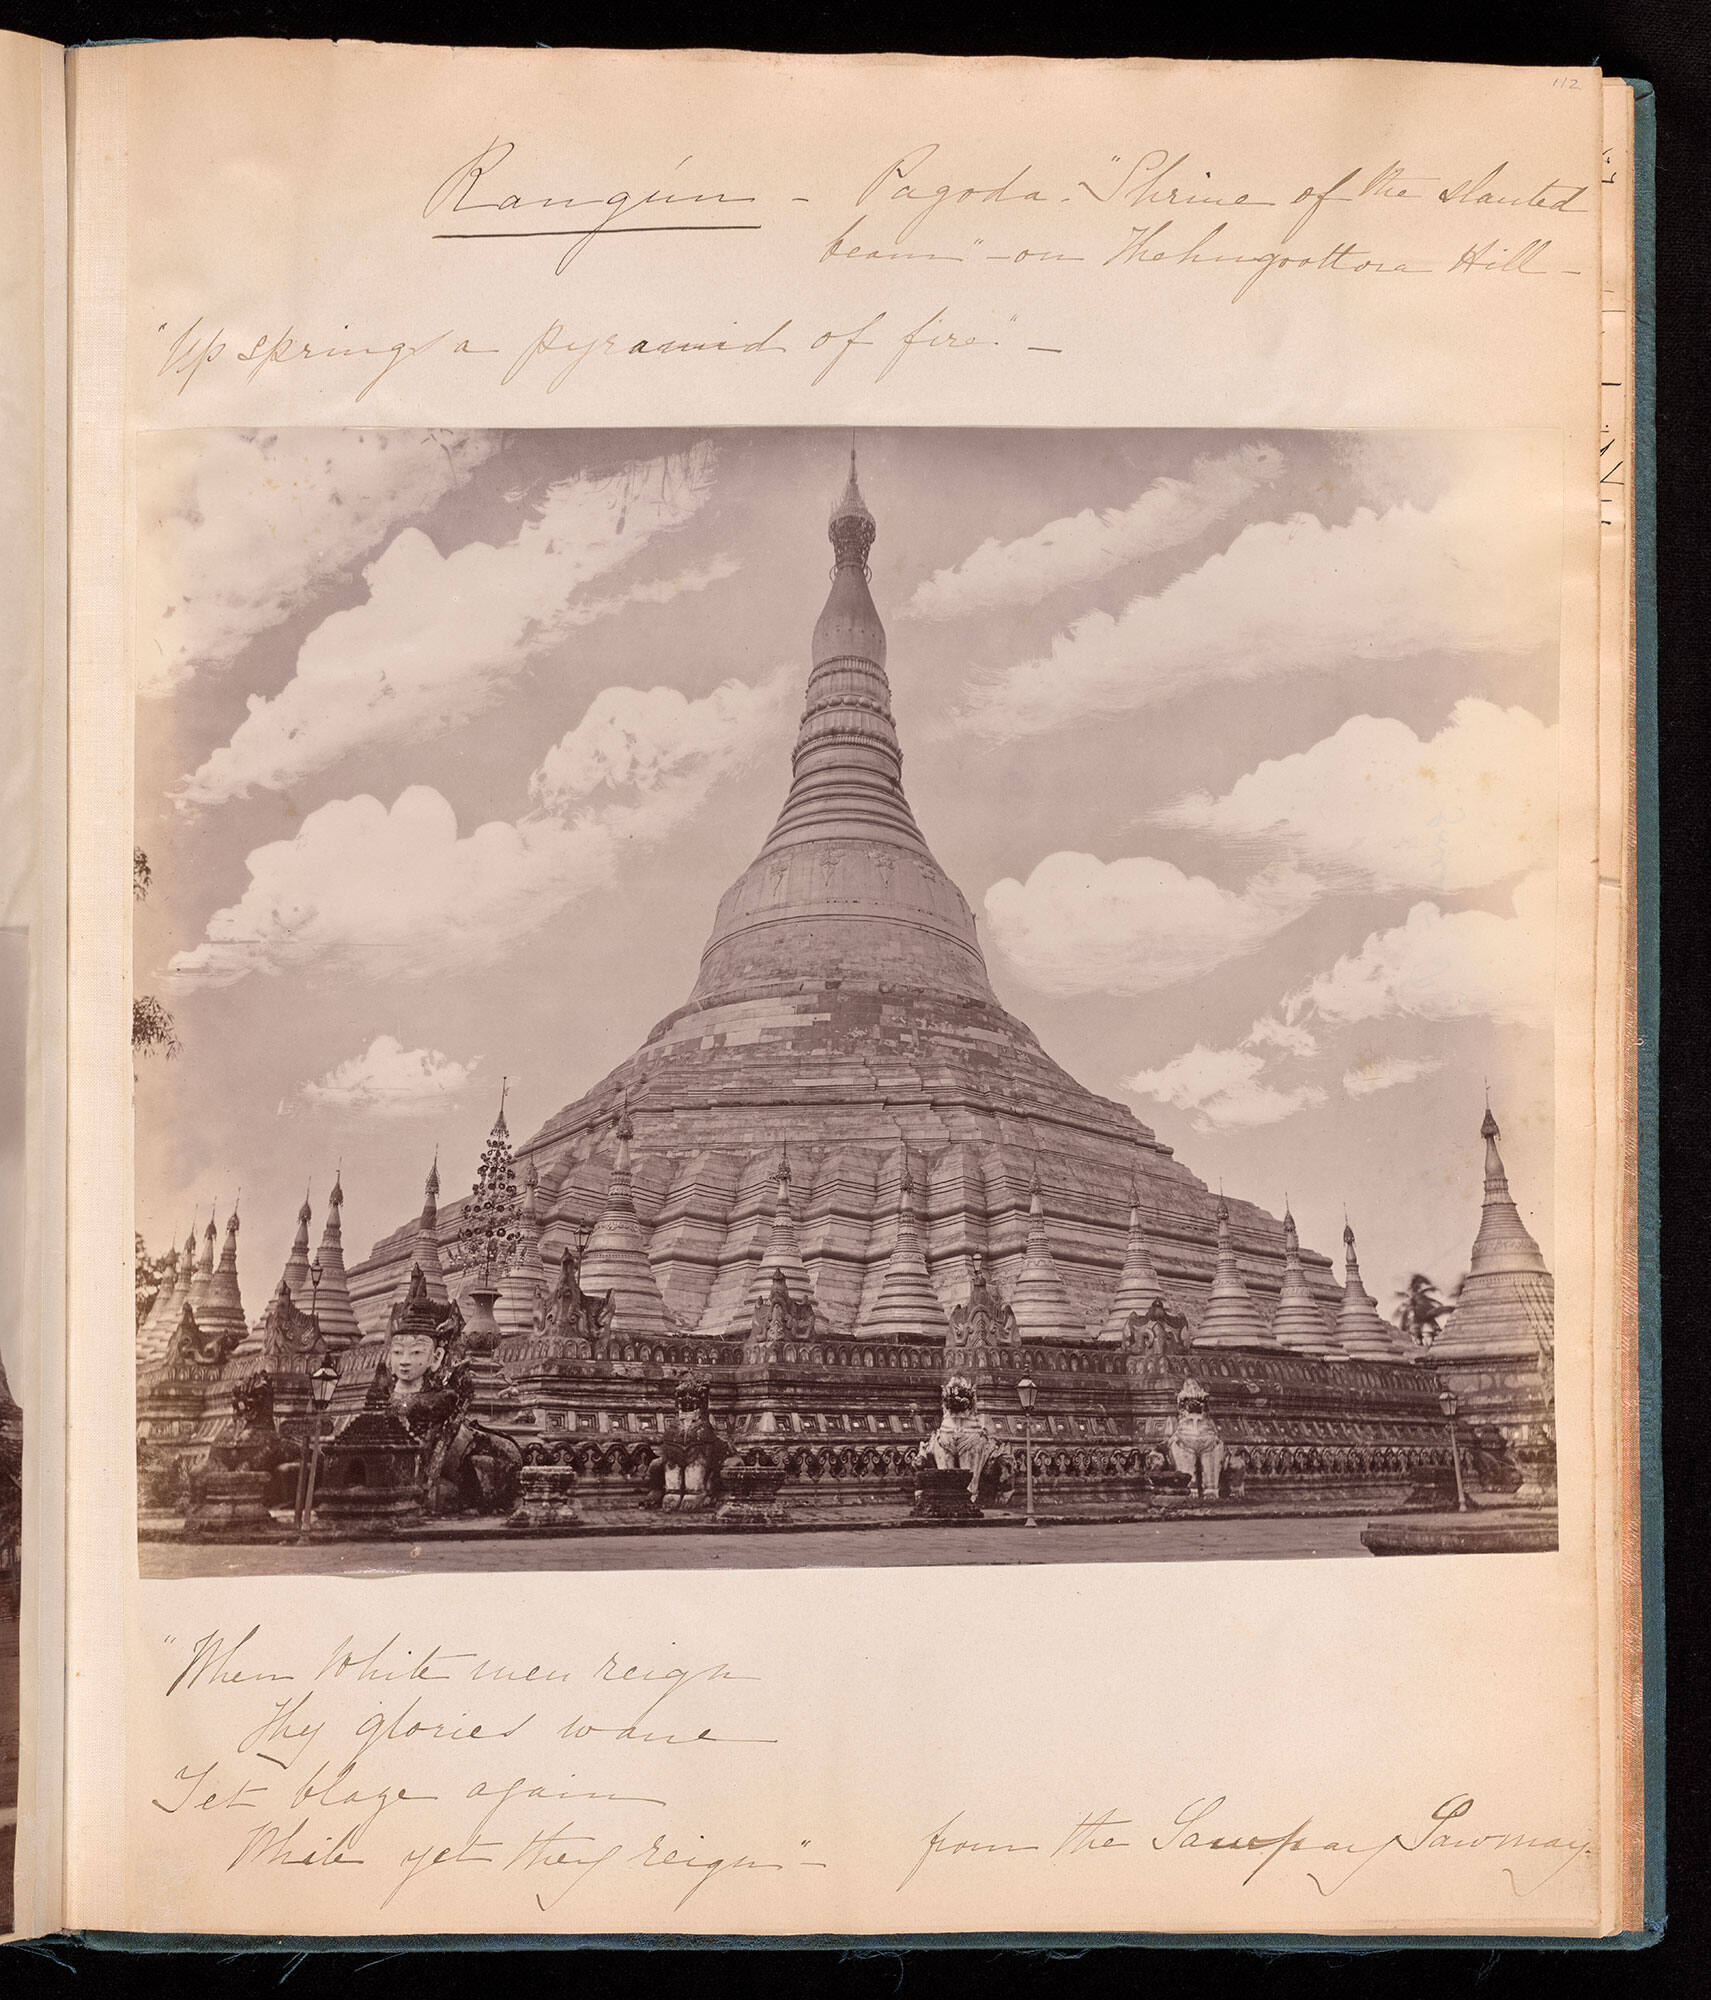 112
Rangún - Pagoda. "Shrine of the slanted
beam" - on Thehngoottora Hill -
"Up springs a pyramid of fire." -
"When White men reign
Thy glories wane
Yet blaze again
While yet they reign" -
from the Sawpay Sawmay.